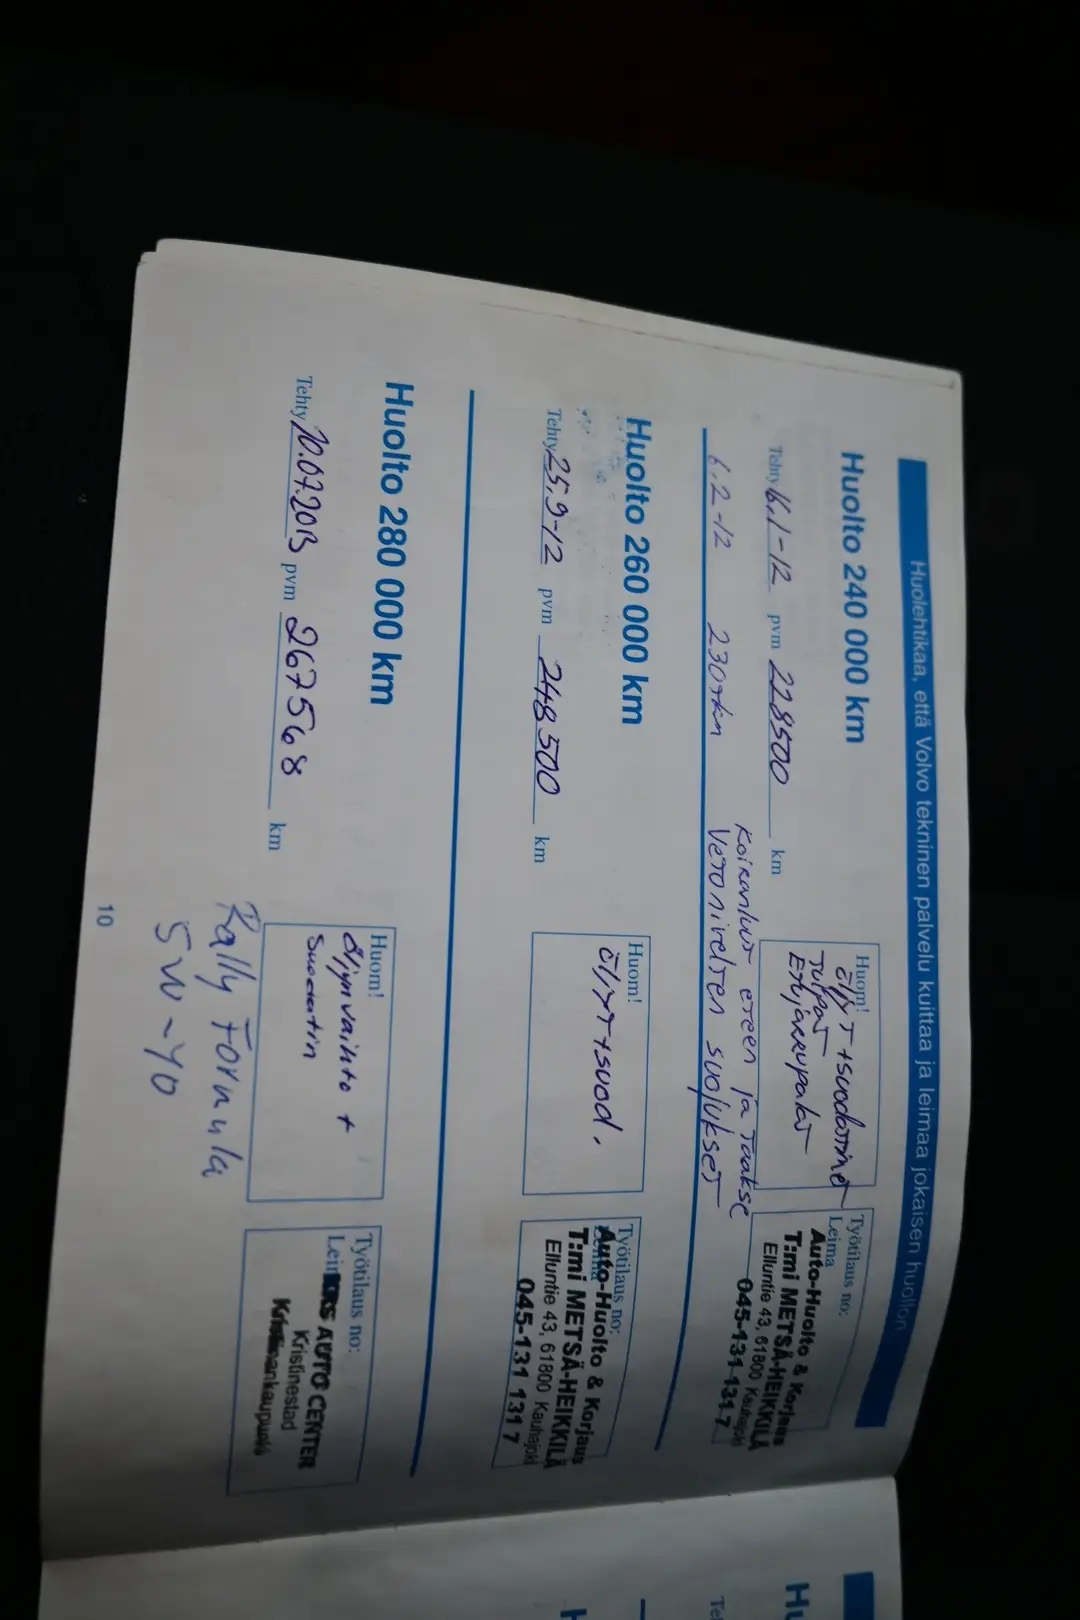 Huolehtikaa, että Volvo tekninen palvelu kuittaa ja leimaa jokaisen huollon
Huolto 240 000 km
Tehty 16.1-12 pvm 228500 km
Huom!
öljyt + suodattimet
Tulpat
Etujarrupalat
Työtilaus no:
Leima
Auto-Huolto & Korjaus
T:mi METSÄ-HEIKKILÄ
Elluntie 43, 61800 Kauhajoki
045-131 131 7
6.2-12 230tkm
Koiranluut eteen ja taakse
Vetonivelten suojukset
Huolto 260 000 km
Tehty 25.9-12 pvm 248500 km
Huom!
öljyt + suod.
Työtilaus no:
Auto-Huolto & Korjaus
T:mi METSÄ-HEIKKILÄ
Elluntie 43, 61800 Kauhajoki
045-131 131 7
Huolto 280 000 km
Tehty 10.07.2013 pvm 267568 km
Huom!
öljynvaihto +
Suodatin
Työtilaus no:
AUTO CENTER
Kristinestad
Rally Formula
5W-40
10
Hu
Te
H